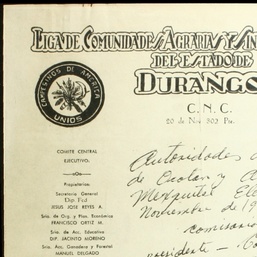 LIGA DE COMUNIDADES AGRARIAS Y SIN
DEL ESTADO DE
DURANGO
C. N. C.
20 de Nov. 907 Pte.
CAMPESINOS DE AMERICA
UNIOS
COMITE CENTRAL
EJECUTIVO.
Propietarios:
Secretario General
Dip. Fed.
JESUS JOSE REYES A.
Srio. de Org. y Plan. Económica
FRANCISCO ORTIZ M.
Srio. de Acc. Educativa
DIP. JACINTO MORENO
Srio. Acc. Ganadera y Forestal
MANUEL DELGADO
Autoridades
de
Mezquital
Noviembre de 19
comisaria
presidente